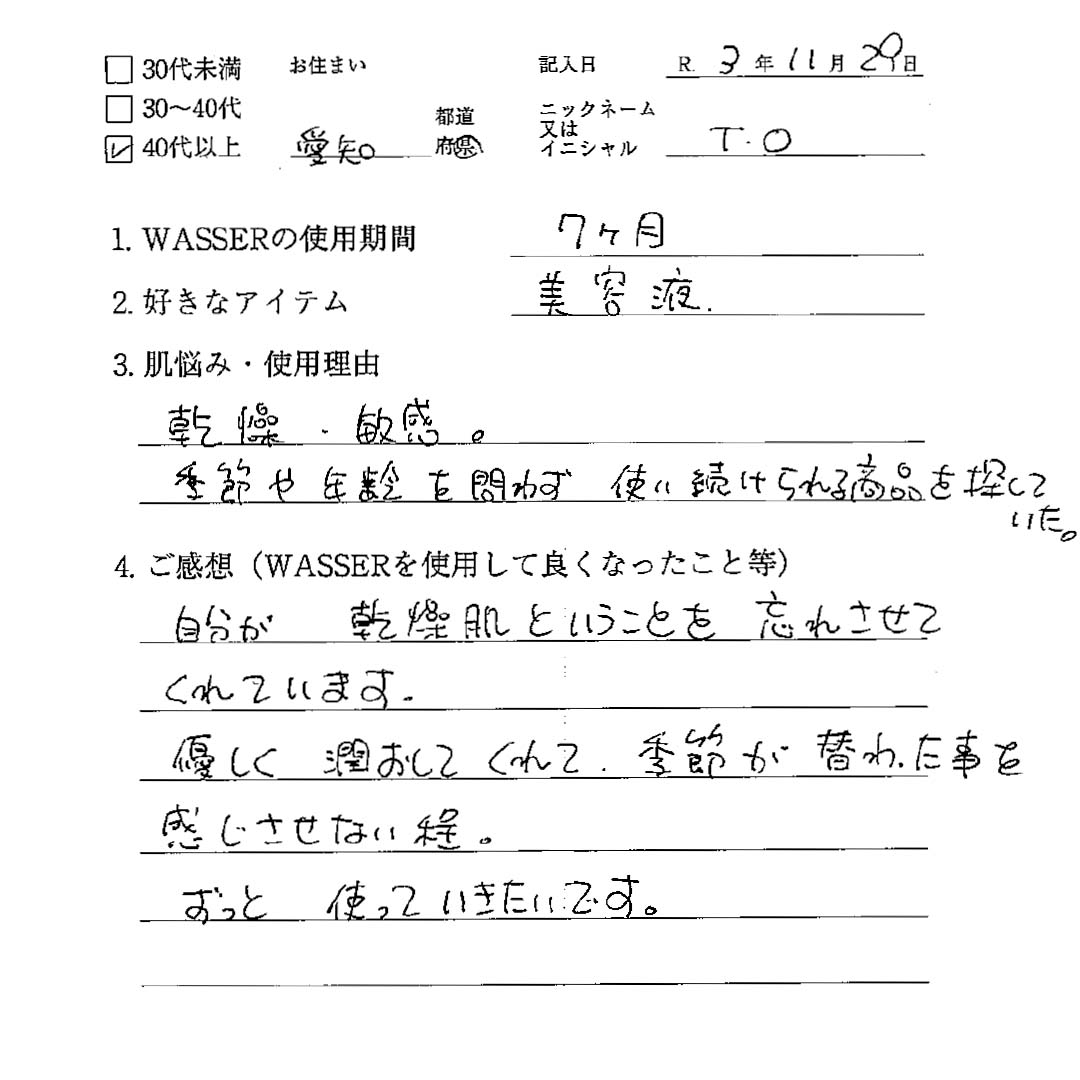 30代未満 お住まい 記入日 R. 3年11月29日
30〜40代 都道 ニックネーム
又は
40代以上 愛知 府県 イニシャル T.O
1. WASSERの使用期間 7ヶ月
2. 好きなアイテム 美容液.
3. 肌悩み・使用理由
乾燥・敏感。
季節や年齢を問わず 使い続けられる商品を探して
いた。
4. ご感想（WASSERを使用して良くなったこと等）
自分が 乾燥肌ということを 忘れさせて
くれています.
優しく 潤おしてくれて. 季節が 替わった事を
感じさせない程。
ずっと 使っていきたいです。